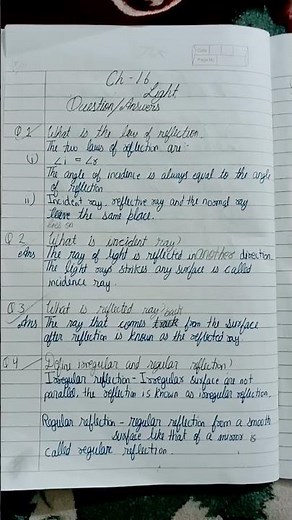 Date
Page No.
Ch - 16
Light
Question/Answers
Q 1 What is the law of reflection.
The two laws of reflection are :-
(i) ∠i = ∠r
The angle of incidence is always equal to the angle
of reflection
ii) Incident ray, reflective ray and the normal ray
leave the same place.
lies on
Q 2 What is incident ray?
Ans The ray of light is reflected in another direction.
The light rays strikes any surface is called
incidence ray.
Q 3 What is reflected ray?
back
Ans The ray that comes from the surface
after reflection is known as the reflected ray.
Q 4 Define irregular and regular reflection?
Irregular reflection - Irregular surface are not
parallel, the reflection is known as irregular reflection.
Regular reflection - regular reflection from a smooth
surface like that of a mirror is
called regular reflection.